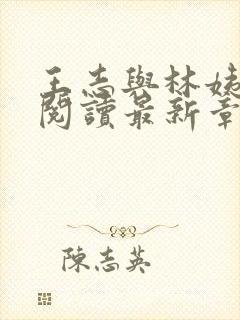 王志與林姨
閱讀最新章
陳志英